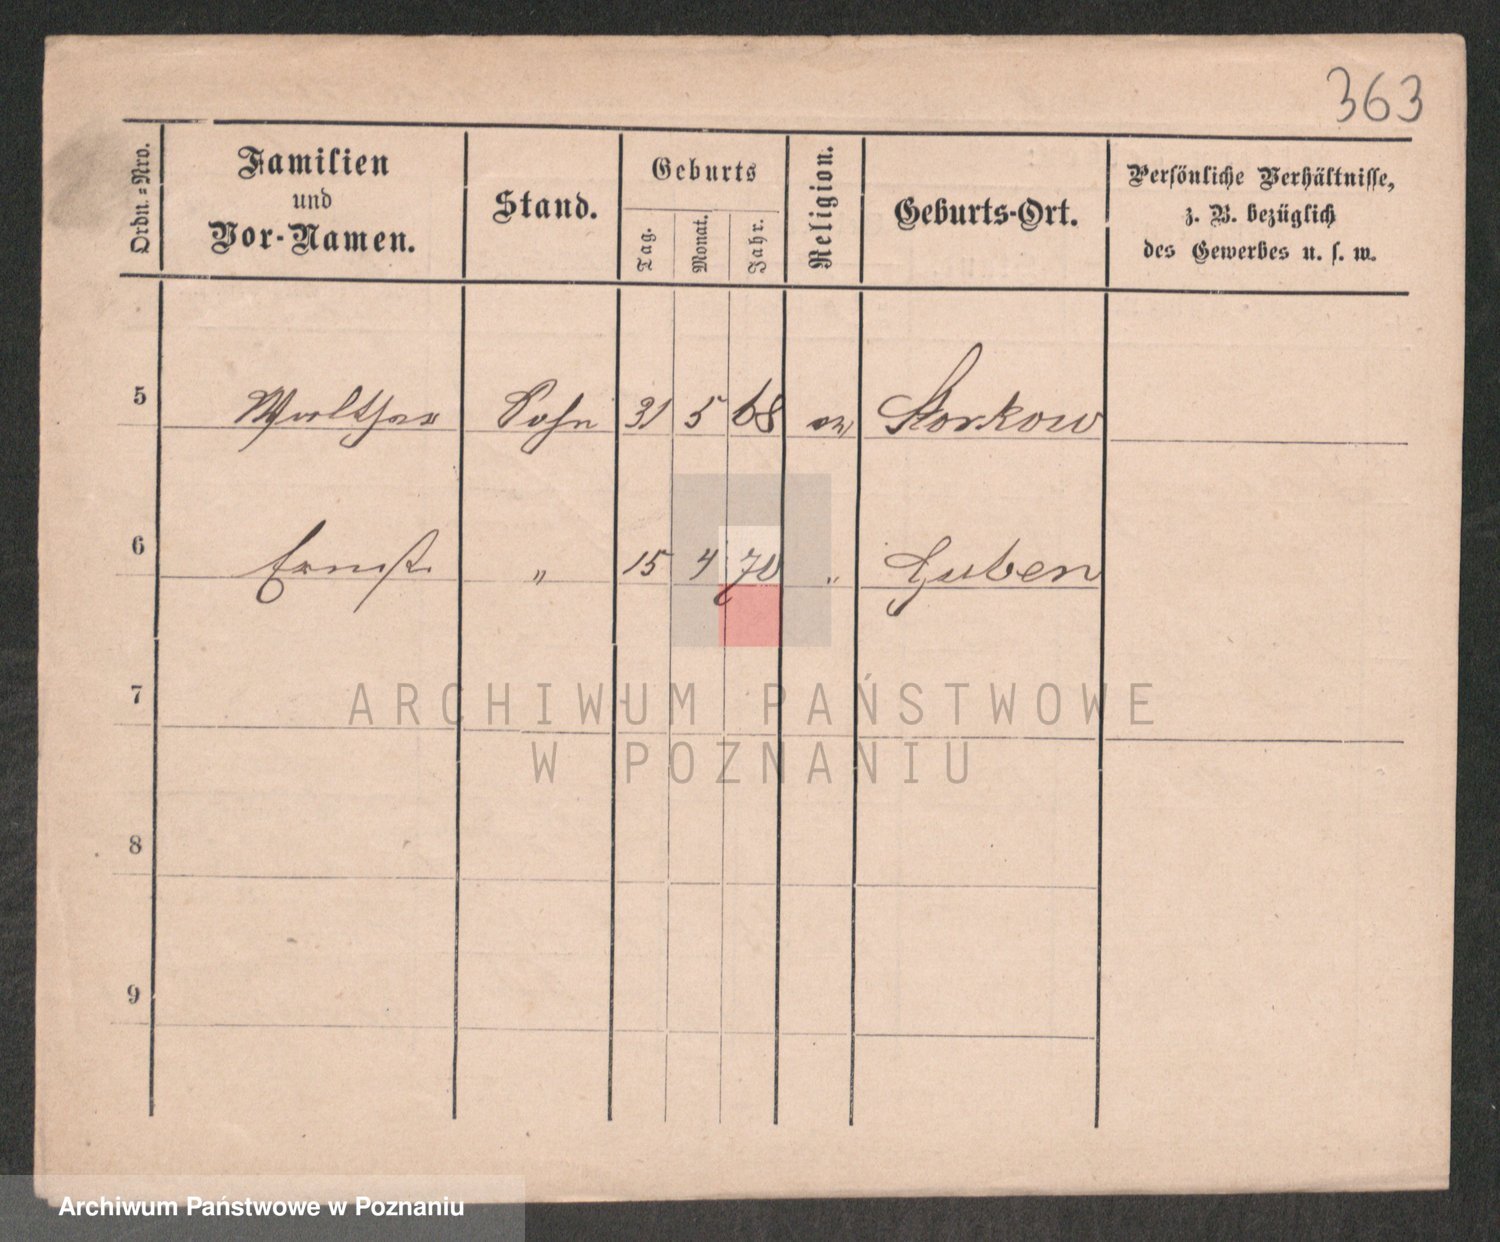 363
Ordn.=Nro.
Familien
und
Vor-Namen.
Stand.
Geburts
Tag.
Monat.
Jahr.
Religion.
Geburts-Ort.
Persönliche Verhältnisse,
z. B. bezüglich
des Gewerbes u. s. w.
5 Walther Sohn 31 5 68 ev Storkow
6 Ernst " 15 4 70 " Guben
7
ARCHIWUM PAŃSTWOWE
W POZNANIU
8
9
Archiwum Państwowe w Poznaniu